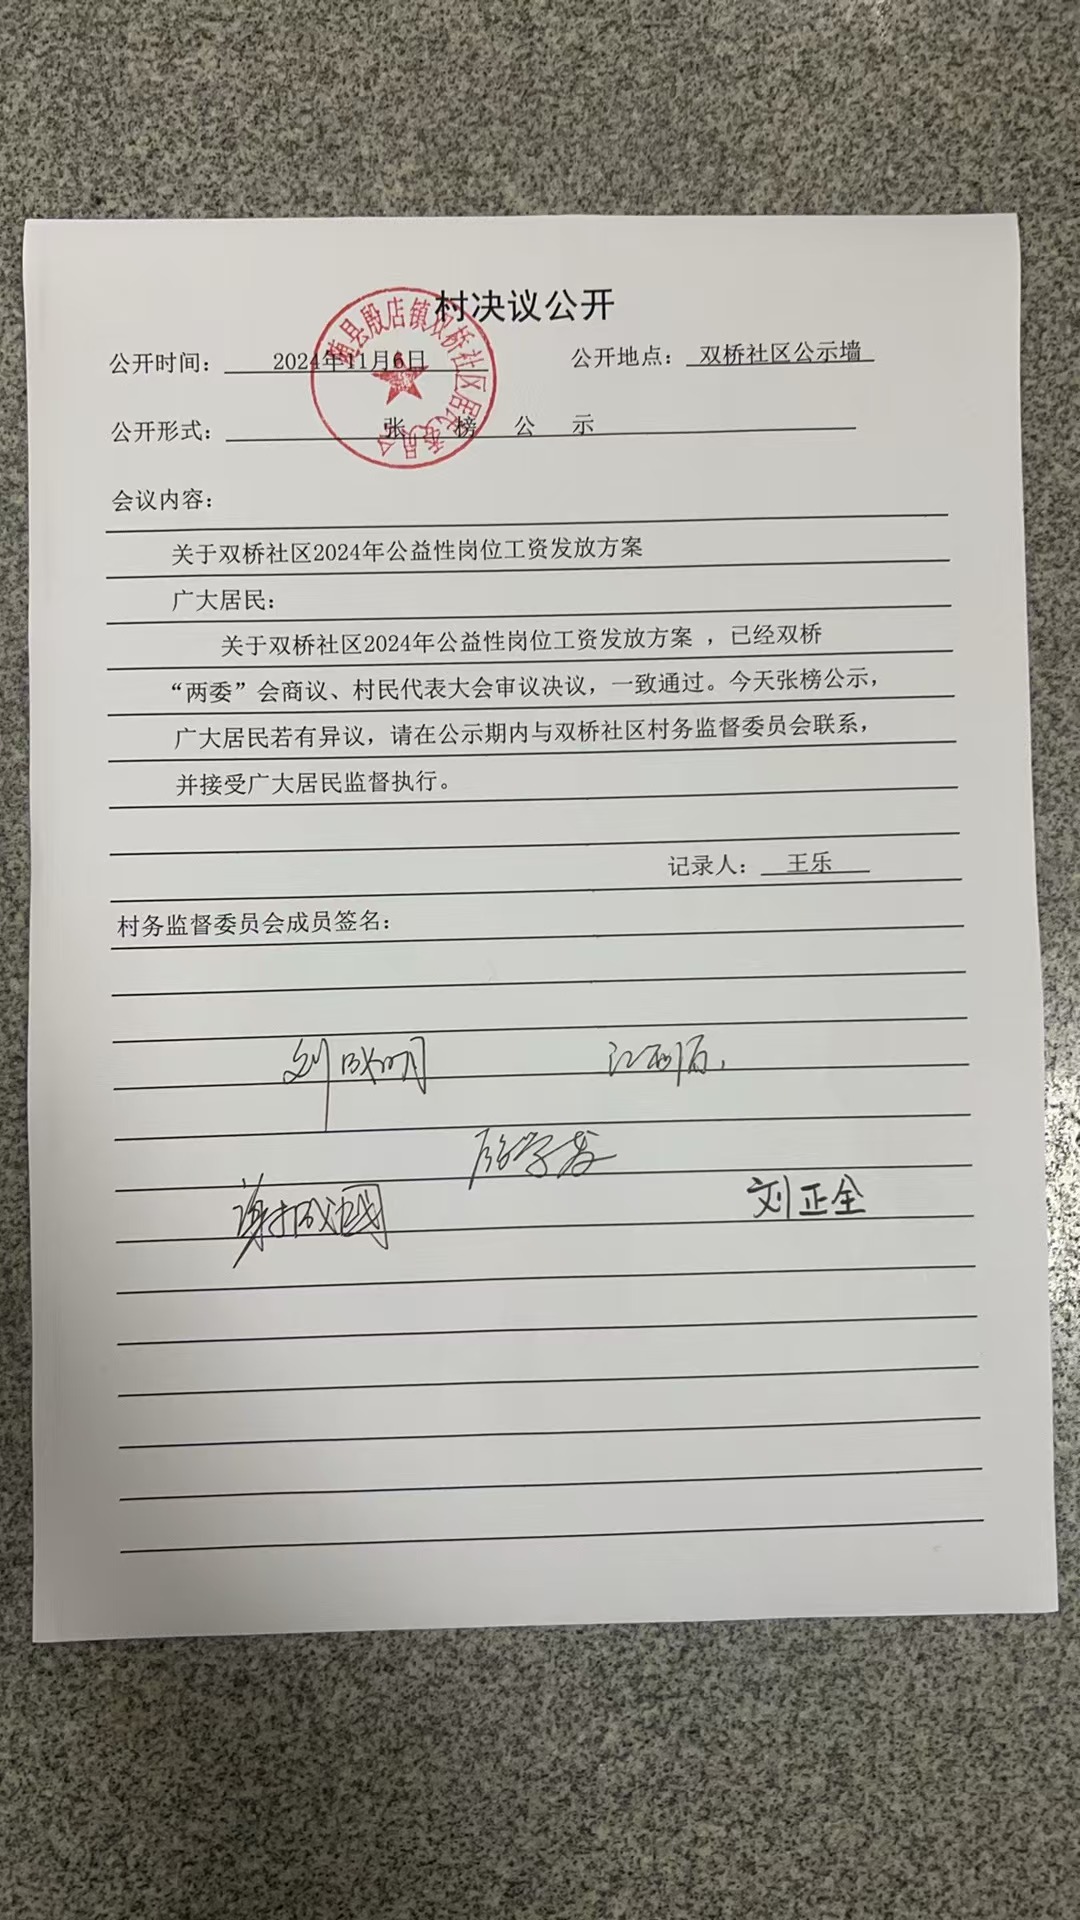 村决议公开
随县殷店镇双桥社区居民委员会
公开时间： 2024年11月6日 公开地点： 双桥社区公示墙
公开形式： 张 榜 公 示
会议内容：
关于双桥社区2024年公益性岗位工资发放方案
广大居民：
关于双桥社区2024年公益性岗位工资发放方案 ，已经双桥
“两委”会商议、村民代表大会审议决议，一致通过。今天张榜公示，
广大居民若有异议，请在公示期内与双桥社区村务监督委员会联系，
并接受广大居民监督执行。
记录人： 王乐
村务监督委员会成员签名：
刘正全